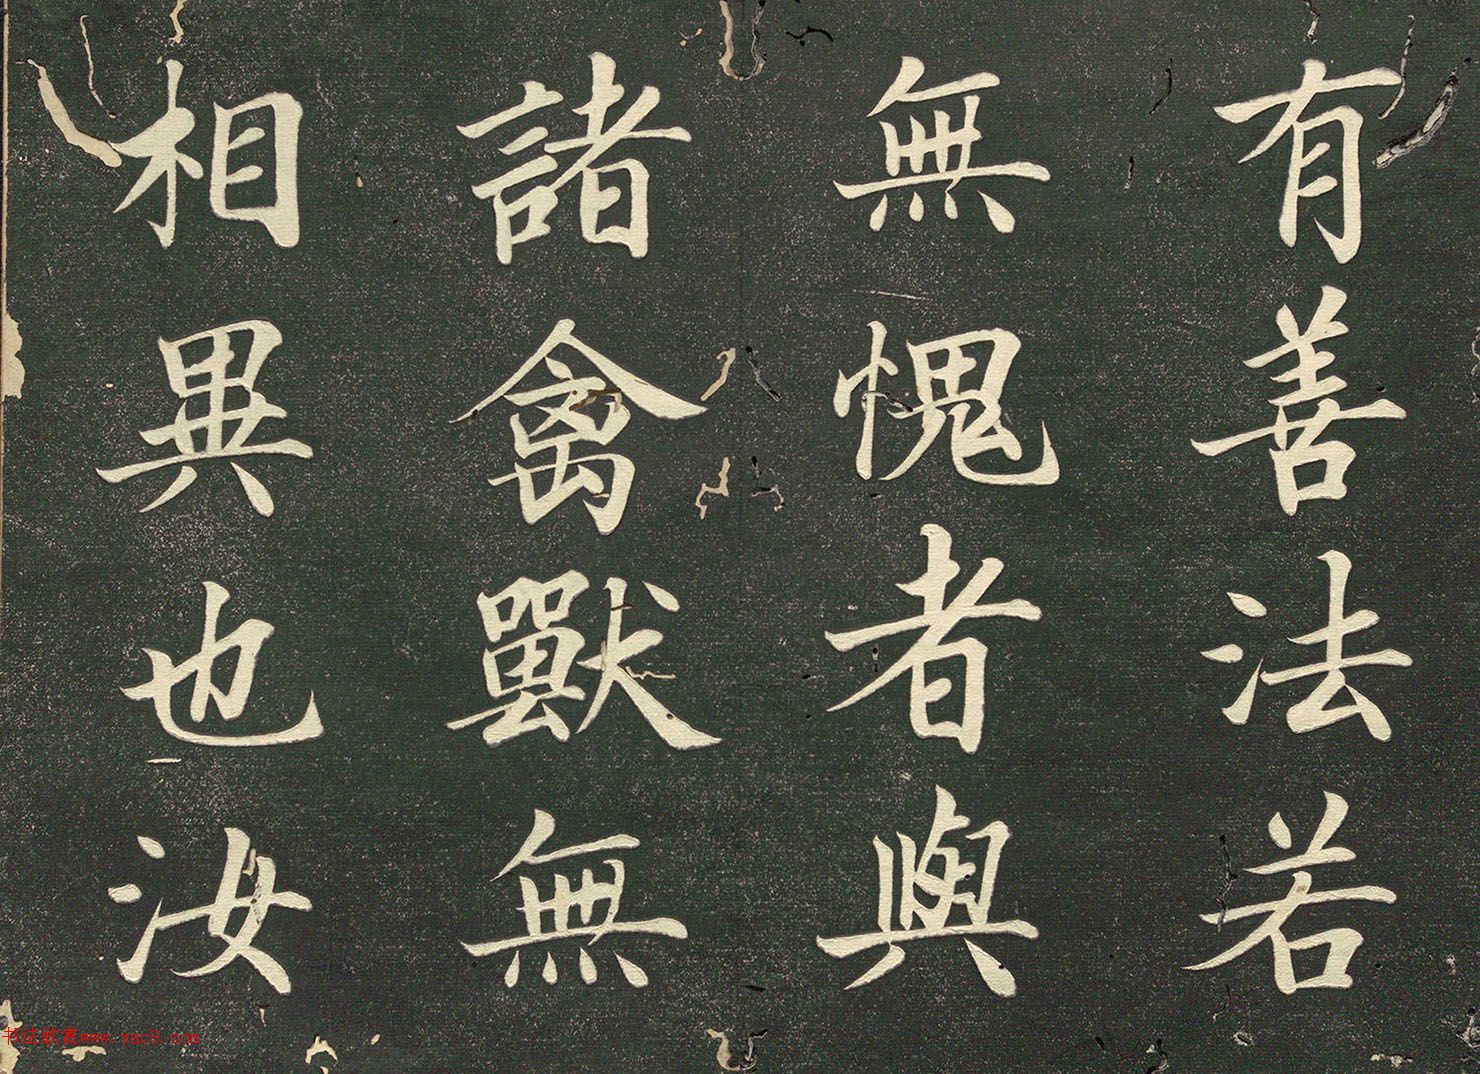 有善法若
無愧者與
諸禽獸無
相異也汝
书法欣赏www.yac8.com